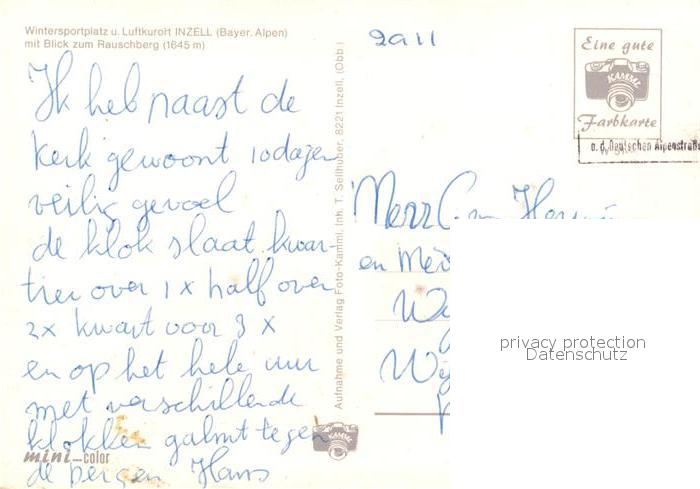 Wintersportplatz u. Luftkurort INZELL (Bayer. Alpen)
mit Blick zum Rauschberg (1645 m)
2911
Ik heb naast de
kerk gewoont 10 dagen
veilig gevoel
de klok slaat kwar-
tier over 1 x half over
2x kwart voor 3 x
en op het hele uur
met verschillende
klokken galmt tegen
de bergen Hans
mini-color
Aufnahme und Verlag Foto-Kamml, Inh. T. Seilhuber, 8221 Inzell, (Obb.)
KAMML
Eine gute
KAMML
Farbkarte
a. d. Deutschen Alpenstraße
en
privacy protection
Datenschutz